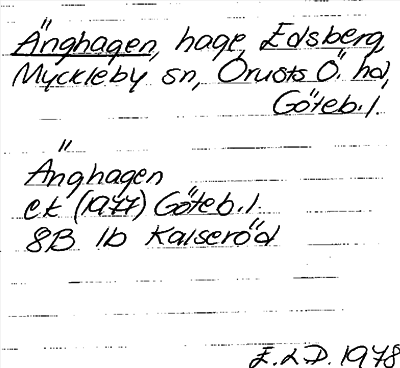 Änghagen, hage, Edsberg,
Myckleby sn, Orusts Ö. hd,
Göteb.l.
Änghagen
ek (1977) Göteb.l.
8B 1b Kalseröd
E.L.D. 1978